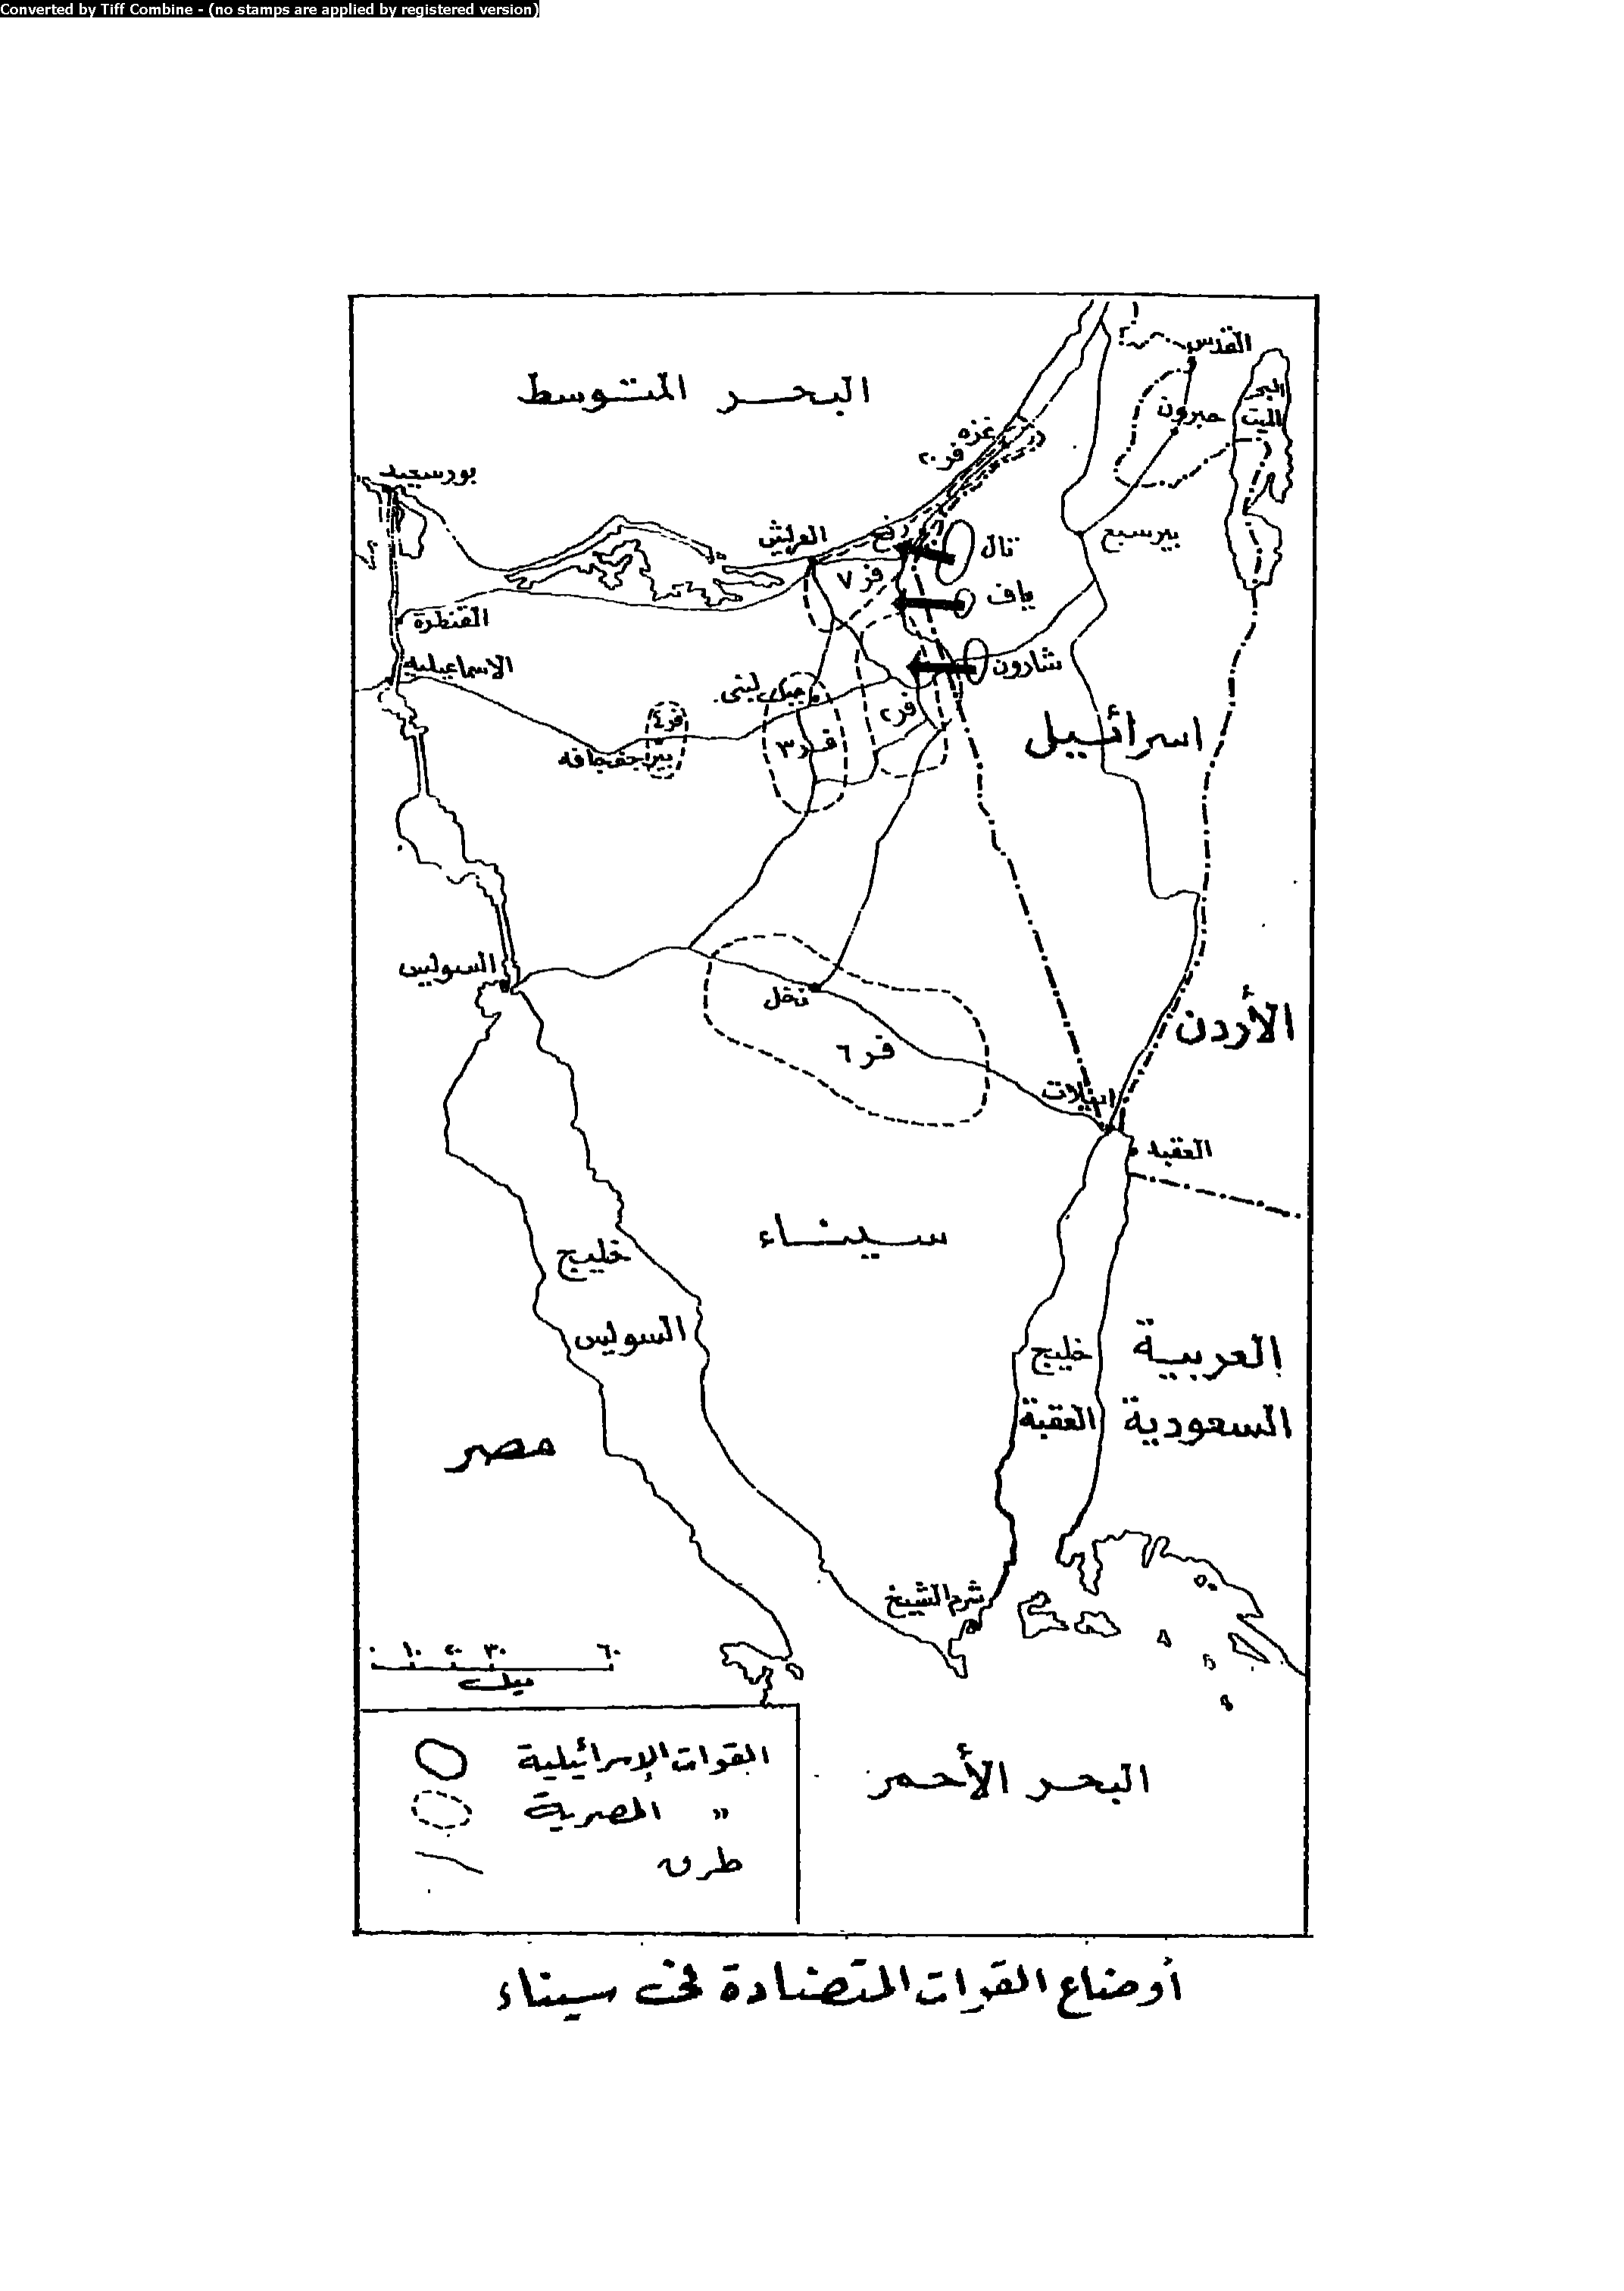 Converted by Tiff Combine - (no stamps are applied by registered version)
القدس
البحر المتوسط
البحر
الميت
حبرون
غزه
فر ٢٠
بورسعيد
رفح
العريش
تال
بيرسبع
فر ٧
ياف
القنطرة
شارون
الاسماعيلية
جبل لبنى
فر ٢
فر ٤
اسرائيل
فر ٣
بير جفجافه
السويس
نخل
الأردن
فر ٦
ايلات
العقبه
سيناء
خليج
السويس
خليج
العقبة
العربية
السعودية
مصر
شرم الشيخ
٠ ١٠ ٢٠ ٣٠ ٦٠
ميل
القوات الإسرائيلية
" المصرية
طرق
البحر الأحمر
أوضاع القوات المتضادة في سيناء